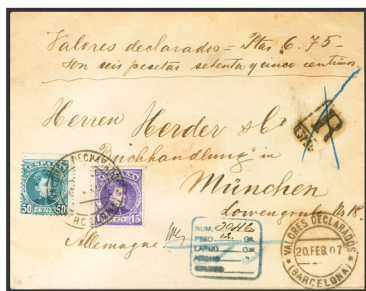 Valores declarados = Ptas 6.75 -
Son seis pesetas setenta y cinco centimos.
R
Herren Herder & Cº
Buchhandlung in
München
Löwengrube Nº 18.
Allemagne
ESPAÑA
50 CENT. 50
ESPAÑA
15 CENT. 15
NUM.
PESO 12. Gr.
LARGO
ANCHO
VALORES DECLARADOS
20.FEB.07
(BARCELONA)